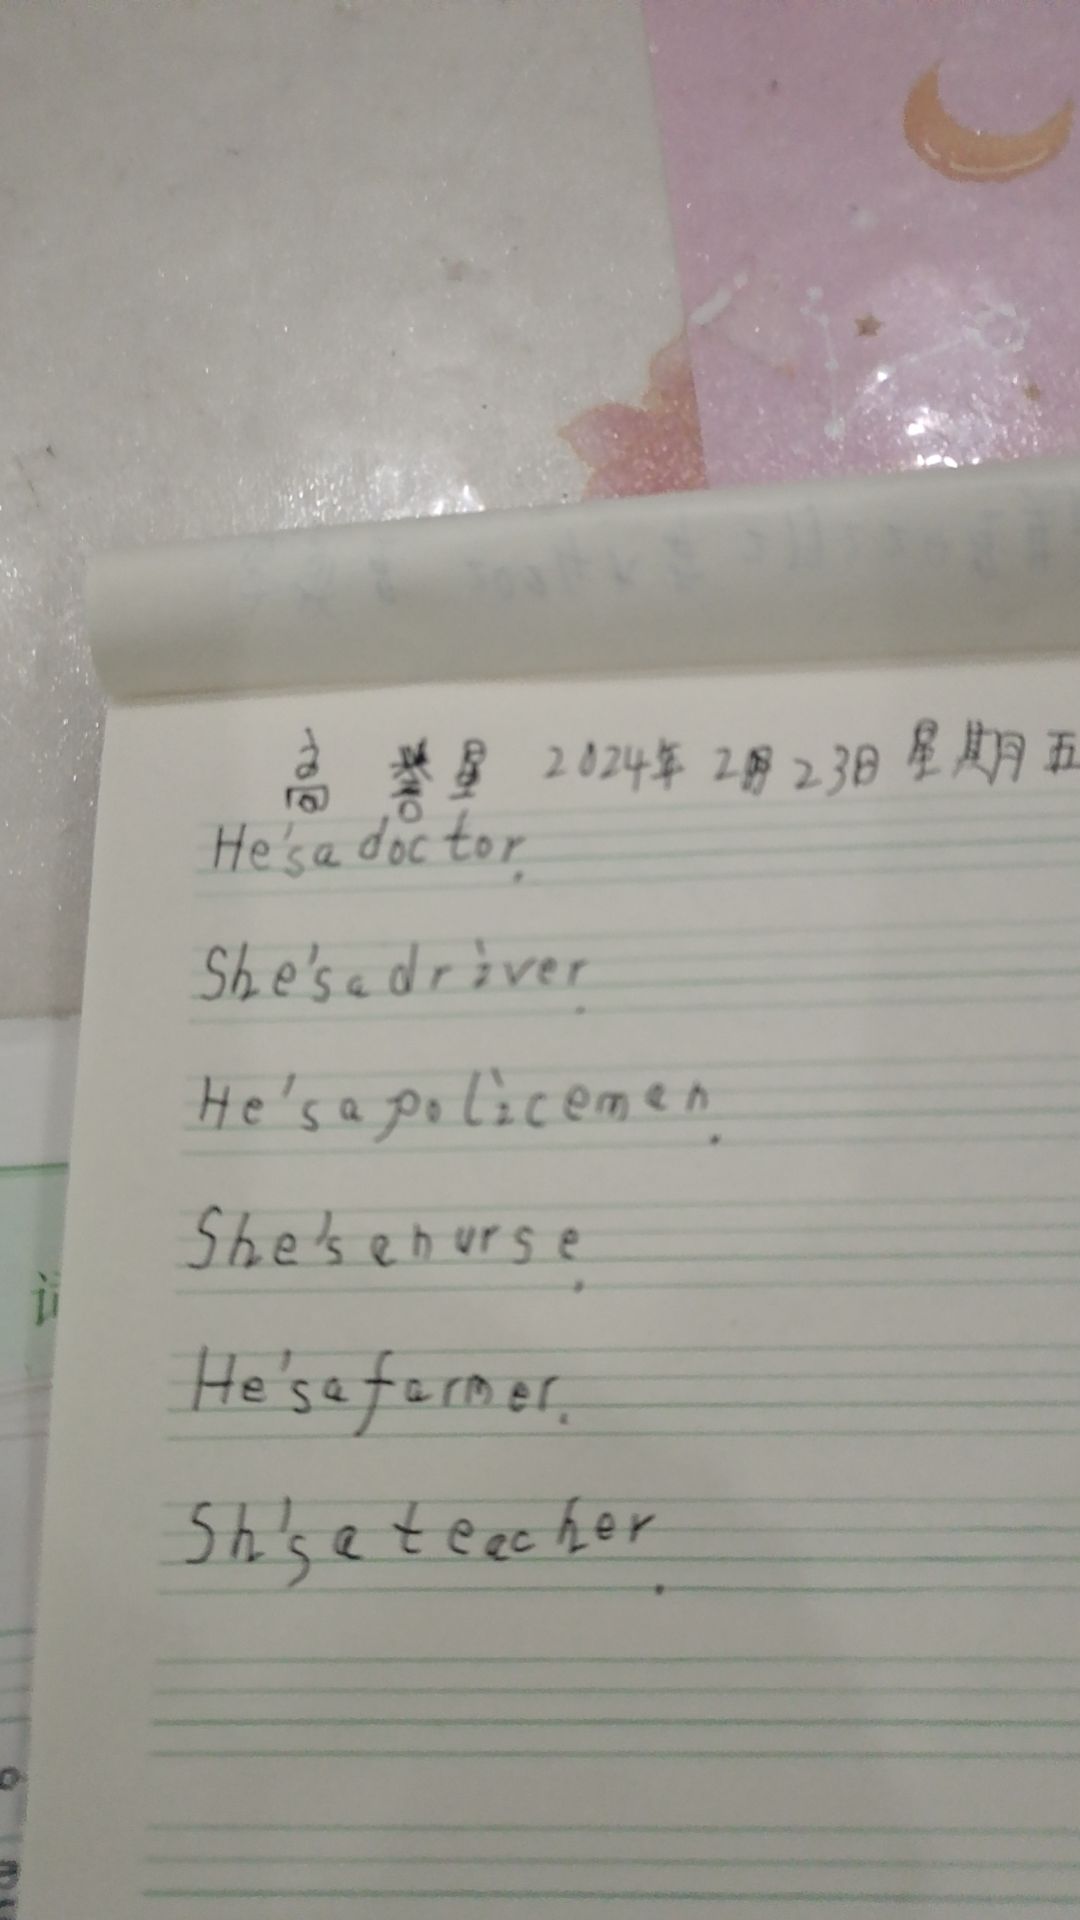 高 誉星 2024年 2月 23日 星期五
He's a doctor.
She's a driver.
He's a policeman.
She's a nurse.
He's a farmer.
Sh's a teacher.